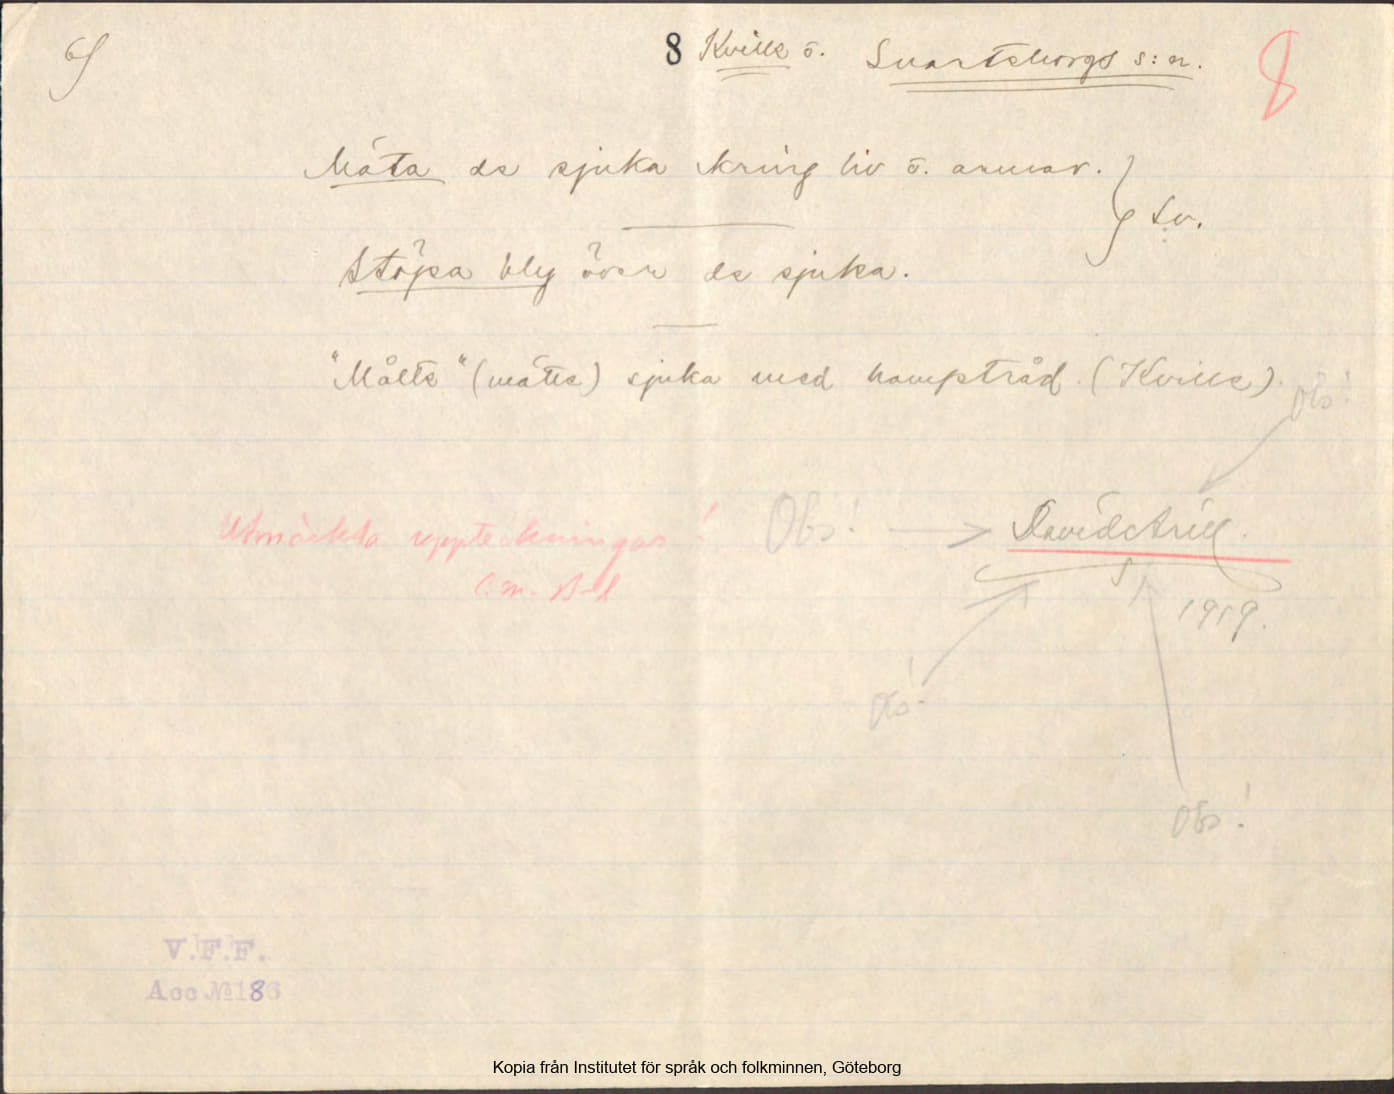 8 Kville o. Svarteborgs s:n. 8
Mäta de sjuka kring liv o. armar. } Sv.
Stöpa bly över de sjuka.
"Målte" (mätte) sjuka med hamptråd. (Kville).
Obs!
Utmärkta uppteckningar! Obs! David Arill.
C.m. A-l
1919.
Obs!
Obs!
V.F.F.
Acc № 186
Kopia från Institutet för språk och folkminnen, Göteborg